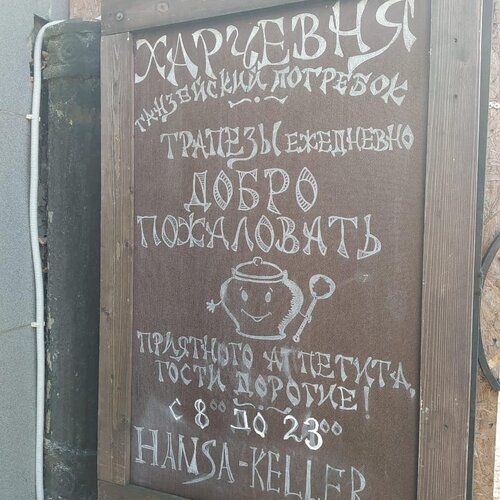 ХАРЧЕВНЯ
ГАНЗЕЙСКИЙ ПОГРЕБОК
ТРАПЕЗЫ ЕЖЕДНЕВНО
ДОБРО
ПОЖАЛОВАТЬ
ПРИЯТНОГО АППЕТИТА,
ГОСТИ ДОРОГИЕ!
С 8⁰⁰ ДО 23⁰⁰
HANSA-KELLER